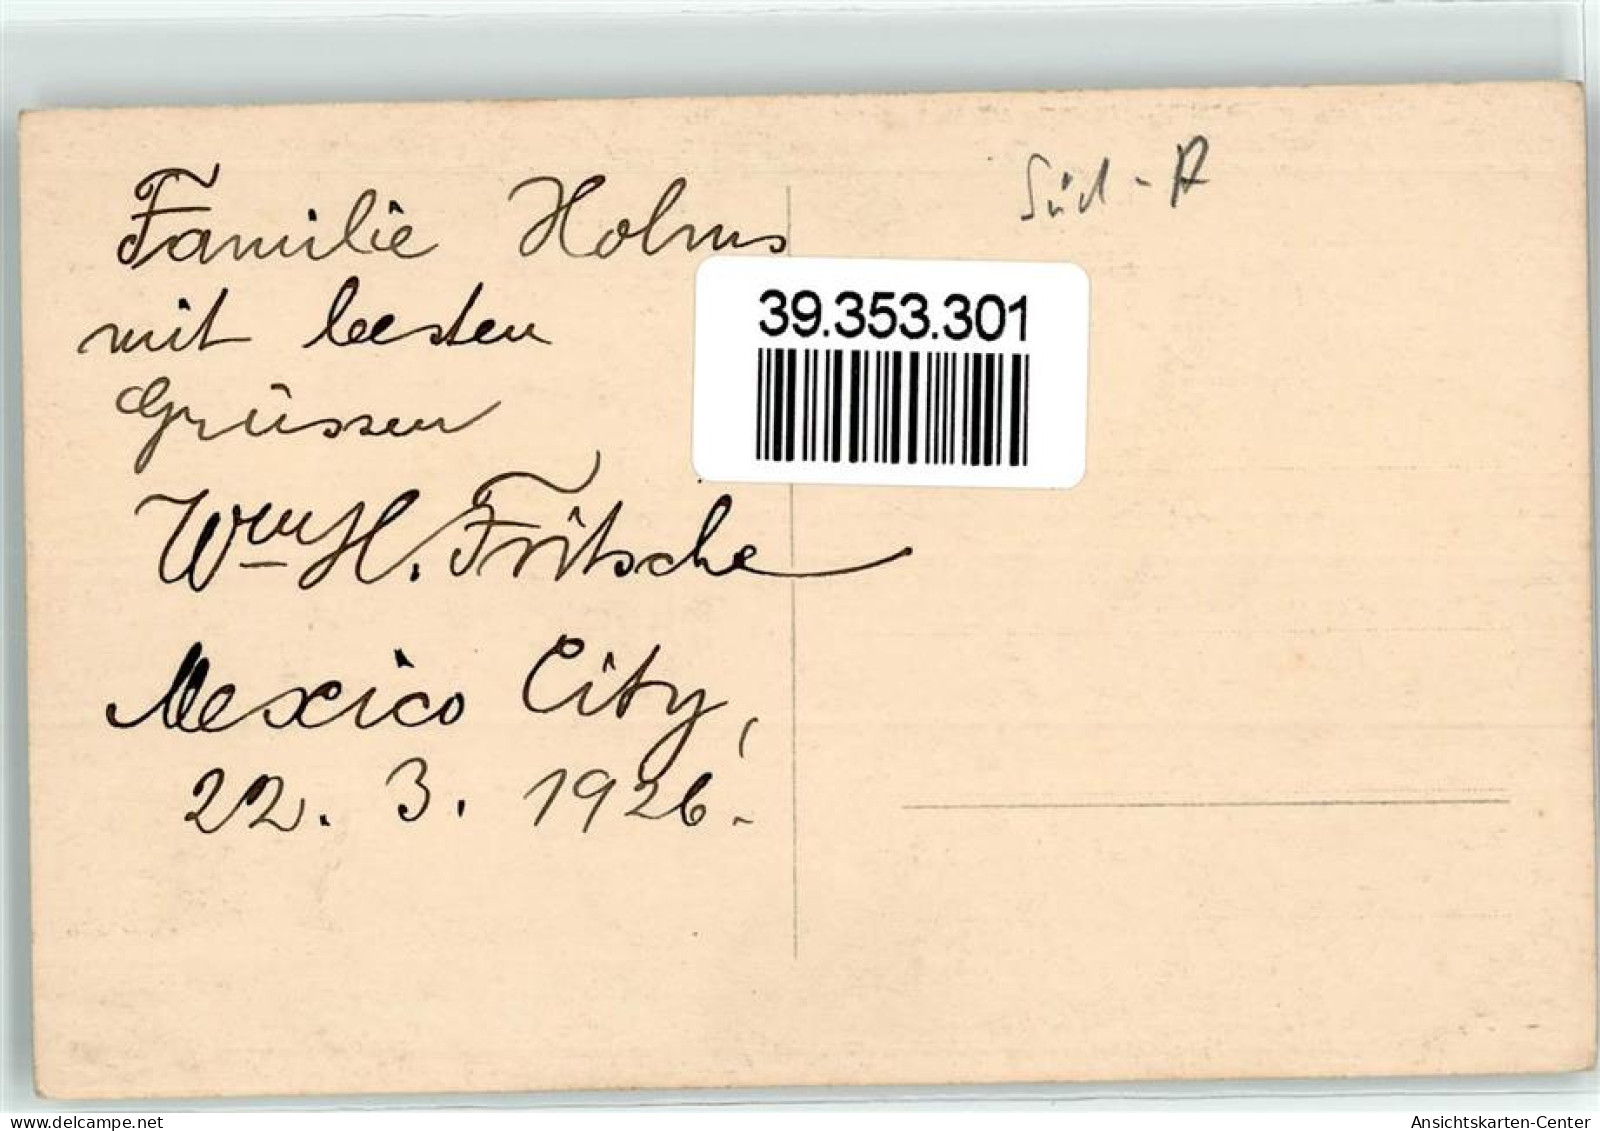 Familie Holms
mit besten
Grüssen
Wm H. Fritsche
Mexico City,
22. 3. 1926.
Süd-A
39.353.301
delcampe.net
Ansichtskarten-Center